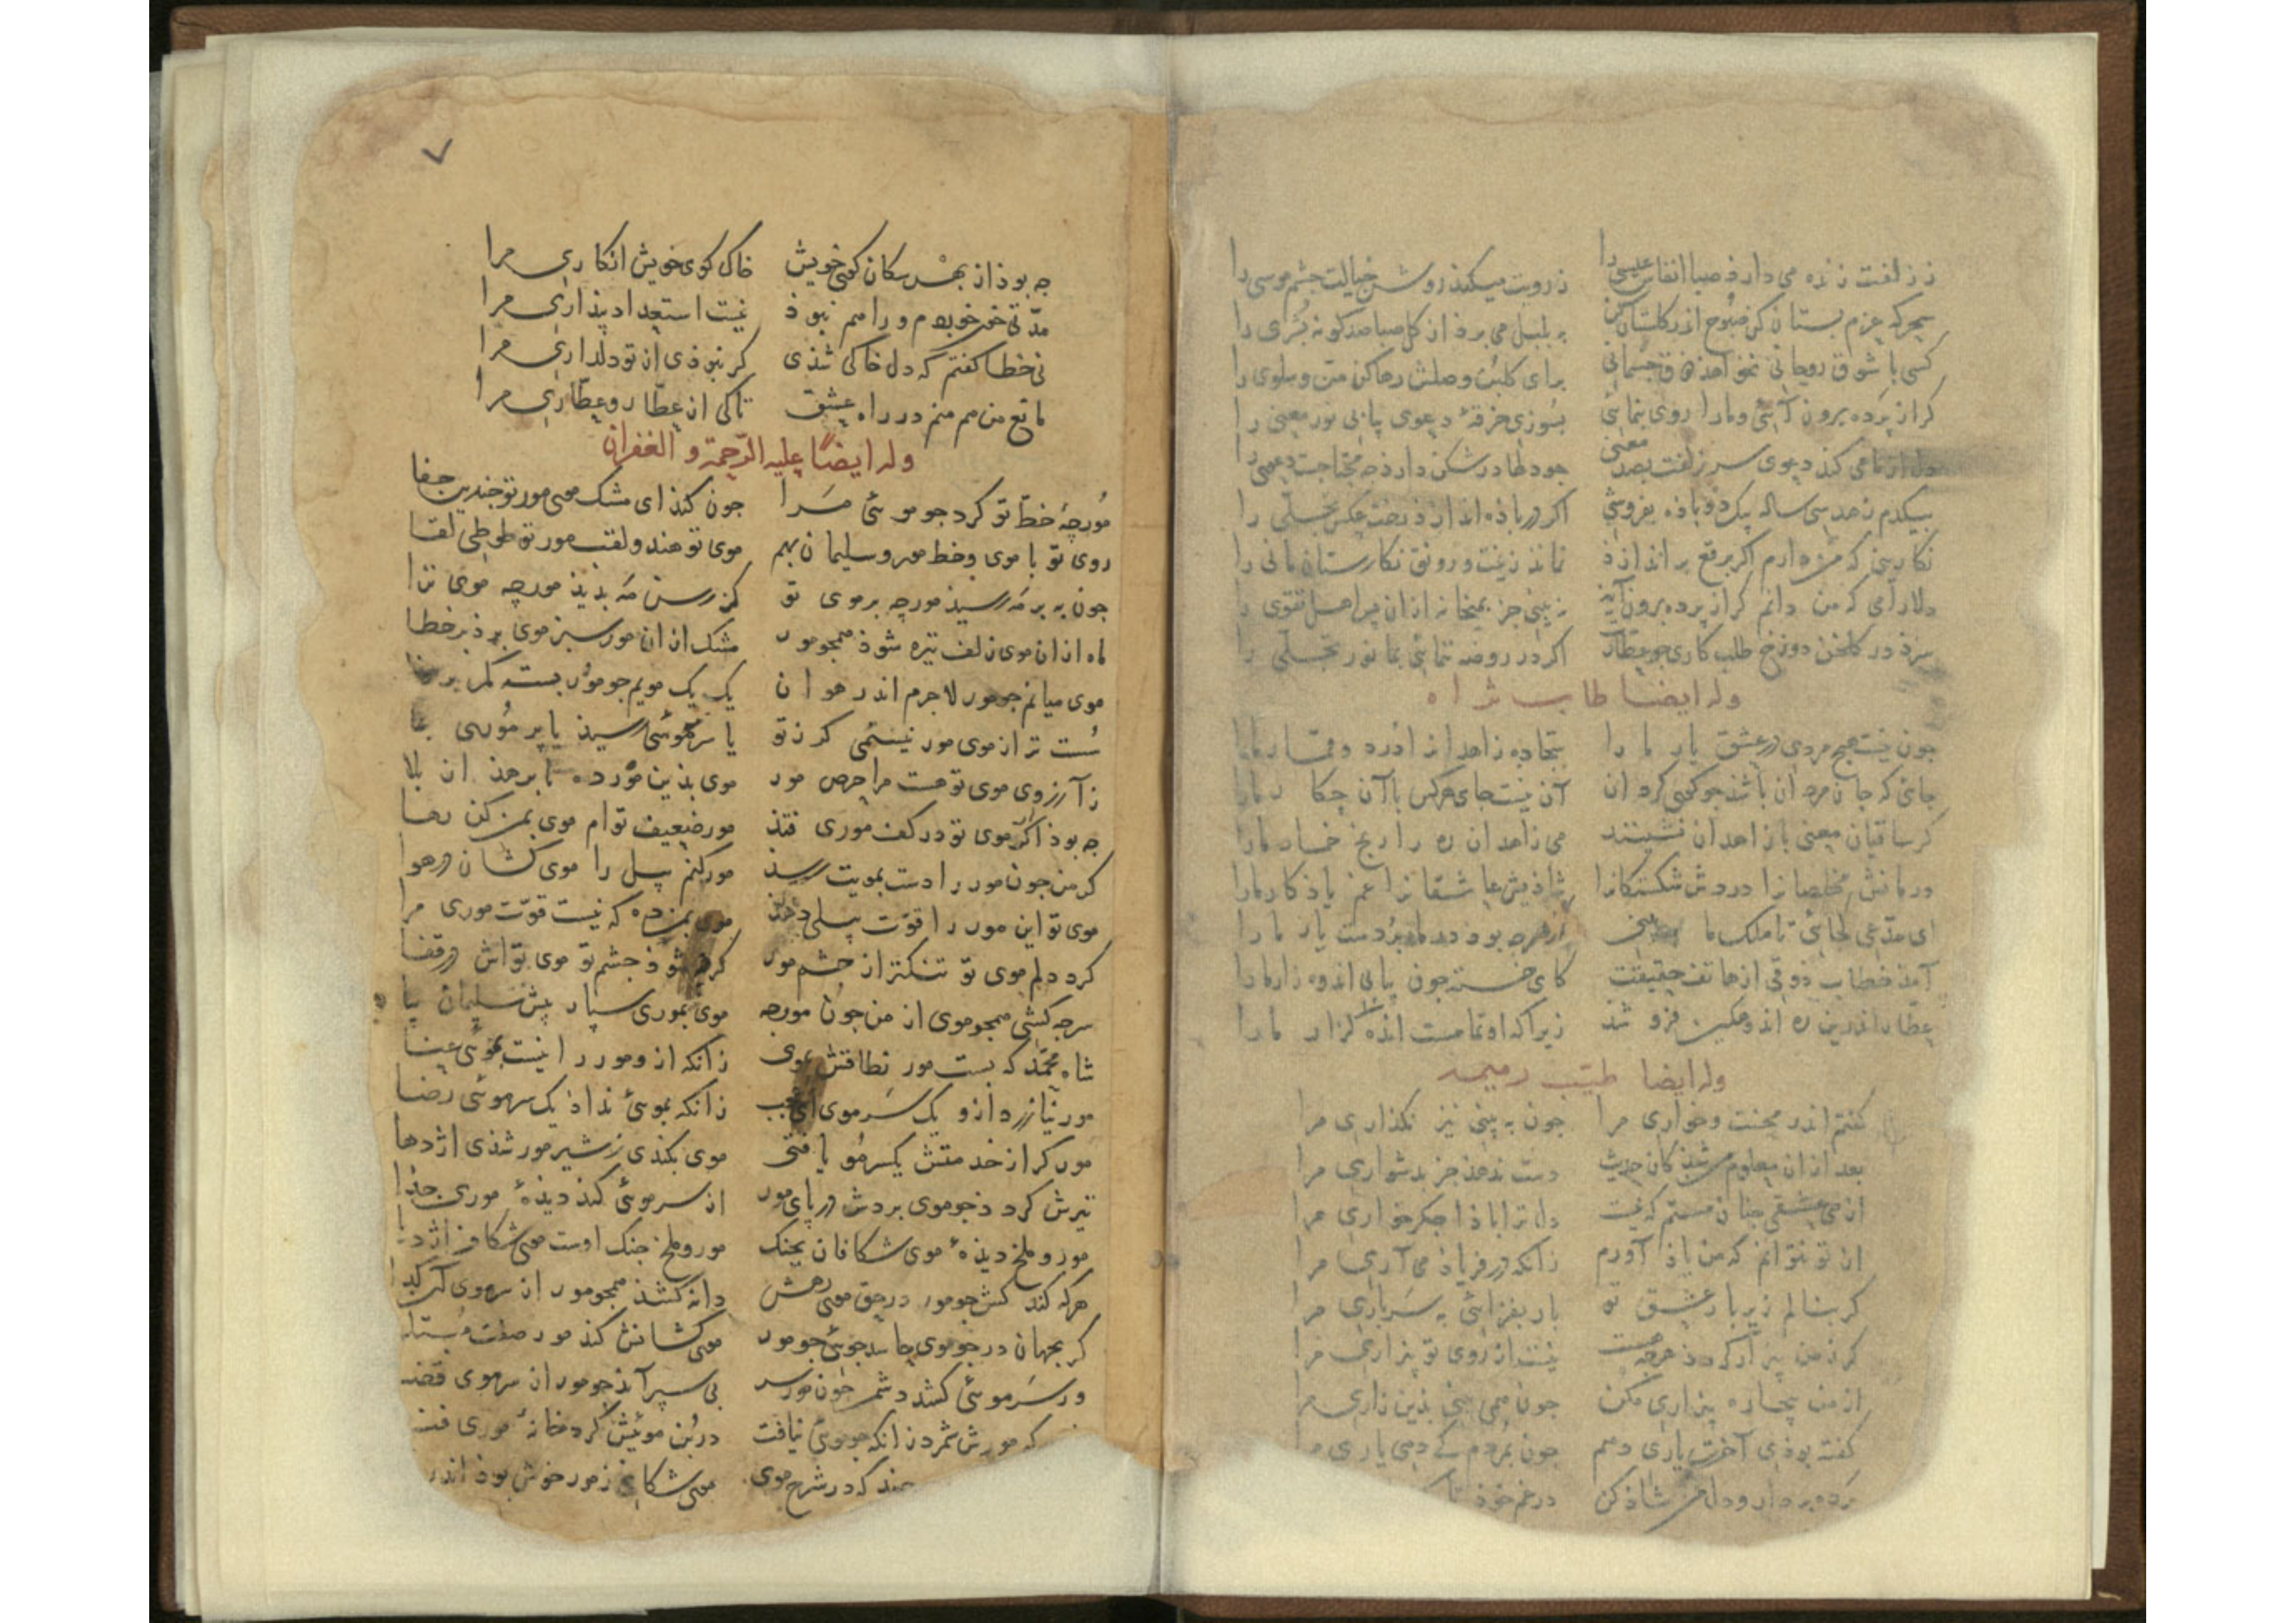 ز زلفت زنده می دارذ صبا انفاس عیسی را ز رویت میکنذ روشن خیالت چشم موسی را
سحرکه عزم بستان کن صبوح اندر کلستان کن به بلبل می برذ از کل صبا صدکونه بشری را
کسی با شوق روحانی نخواهذ ذوق جسمانی برای کلبن وصلش رها کن من و سلوی را
کر از پرده برون آئی و ما را روی بنمائی بسوزی خرقهٔ دعوی بیابی نور معنی را
دل از ما می کند دعوی سر زلفت بصد معنی جو دلها در شکن دارذ جه محتاجست دعوی را
بیکدم زهد سی ساله بیک دم باذه بفروشم اکر در باذه اندازذ رخت عکس تجلی را
نکارینی که من دارم اکر برقع بر اندازذ نماند زینت و رونق نکارستان مانی را
دلارامی که من دانم کر از پرده برون آید نه بینی جز بمیخانه ازان پس اهل تقوی را
سزذ در کلخن دوزخ طلب کاری جو عطارت اکر در روضه ننمائی بما نور تجلی را
وله ایضا طاب ثراه
جون نیست هیج مردی در عشق یار ما را سجاده زاهدانرا درد و قمار ما را
جائی که جان مردان باشذ جو کوی کردان آن نیست جای هرکس با آن جکار ما را
کر ساقیان معنی با زاهدان نشینند می زاهدان ره را رنج خمار ما را
درمانش مخلصانرا دردش شکستکانرا شاذیش عاشقانرا غم یاذکار ما را
ای مدعی کجائی تا ملک ما به بینی از هرجه بوذ در ما برد دست یار ما را
آمذ خطاب ذوقی از هاتف حقیقت کای خسته جون بیابی اندوه زار ما را
عطار اندرین ره اندوهکین فرو شذ زیرا که او تمامست انده کزار ما را
وله ایضا طیب رمیمه
کفتم اندر محنت و خواری مرا جون به بینی نیز نکذاری مرا
بعد ازان معلوم من شذ کان حدیث دست ندهذ جز بدشواری مرا
از می عشقت جنان مستم که نیست دل تا باذا جکر خواری مرا
از تو نتوانم که من یاذ آورم زانکه در فریاذ می آری مرا
کر بنالم زیر بار عشق تو بار بفزائی به سرباری مرا
کر ز من بیزار کردذ هرجه هست نیست از روی تو بیزاری مرا
از من بیجاره بیزاری مکن جون همی بینی بذین زاری مرا
کفته بوذی آخرت یاری دهم جون بمردم کی دهی یاری مرا
برده بردار و دل من شاذ کن در غم خوذ تا
۷
جه بوذ از بهر سکان کوی خویش خاک کوی خویش انکاری مرا
مدتی خون خوردم و راهم نبوذ نیست استعداد بیذاری مرا
نی خطا کفتم که دل خاکی شذی کر نبوذی از تو دلداری مرا
مانع من هم منم در راه عشق تا کی از عطار و عطاری مرا
وله ایضًا علیه الرحمة و الغفران
مورجهٔ خط تو کرد جو موئی مرا جون کنذ ای مشک موی مور تو جندین جفا
روی تو با موی و خط مور و سلیمان بهم موی تو هندو لقب مور تو طوطی لقا
جون به بر مه رسیذ مورجه بر موی تو کز رسن مه بدیذ مورجه موی ترا
ماه از آن موی زلف تیره شوذ همجو مور مشک از آن مور سبز موی برذ بر خطا
موی میانم جو مور لاجرم اندر هوان یک بیک مویم جو مور بسته کمر بر
سست تر از موی مور نیستمی کر ز تو یا سر موئی رسیذ یا بر موری بما
ز آرزوی موی تو هست مرا حرص مور موی بذین مور ده تا برهذ از بلا
جه بوذ اکر موی تو در کف موری فتذ مور ضعیف توام موی بمن کن رها
کر من جون مور را دست بمویت رسذ مور کنم بیل را موی کشان در هوا
موی تو این مور را قوت بیلی دهذ موی بمن ده که نیست قوت موری مرا
کرد دلم موی تو تنکتر از جشم مور کر شوذ جشم تو موی تواش در قفا
سرجه کشی همجو موی از من جون مورجه موی بموری سبار بیش سلیمان بیا
شاه محمد که بست مور نطاقش بموی زانکه ازو مور را نیست بموئی عنا
مور نیازرد ازو یک سر موی ای عجب زانکه بموئی نداذ یک سر موئی رضا
مور کر از خدمتش یکسر مو یافتی موی بکندی ز شیر مور شذی اژدها
تیرش کرد ذ جو موی بردش در بای مور از سر موئی کند دیذهٔ موری جذا
مور و ملخ دیذهٔ موی شکافان بجنک مور و ملخ جنک اوست موی شکافر اژدها
هرکه کند کش جو مور در حق موی رهش دانه کشذ همجو مور از سر موی
کر بجهان در جو موی حاسد جوئی جو مور موی کشانش کنذ مور صفت مبتلا
ور سر موئی کشد دشمن جون مور سر بی سبر آیذ جو مور از سر موی قضا
که مورش شمرد زانکه جو موئی نیافت در بن موئیش کرد خانهٔ موری فنا
جند که در شرح موی موی شکافی ز مور خوش بوذ اندر